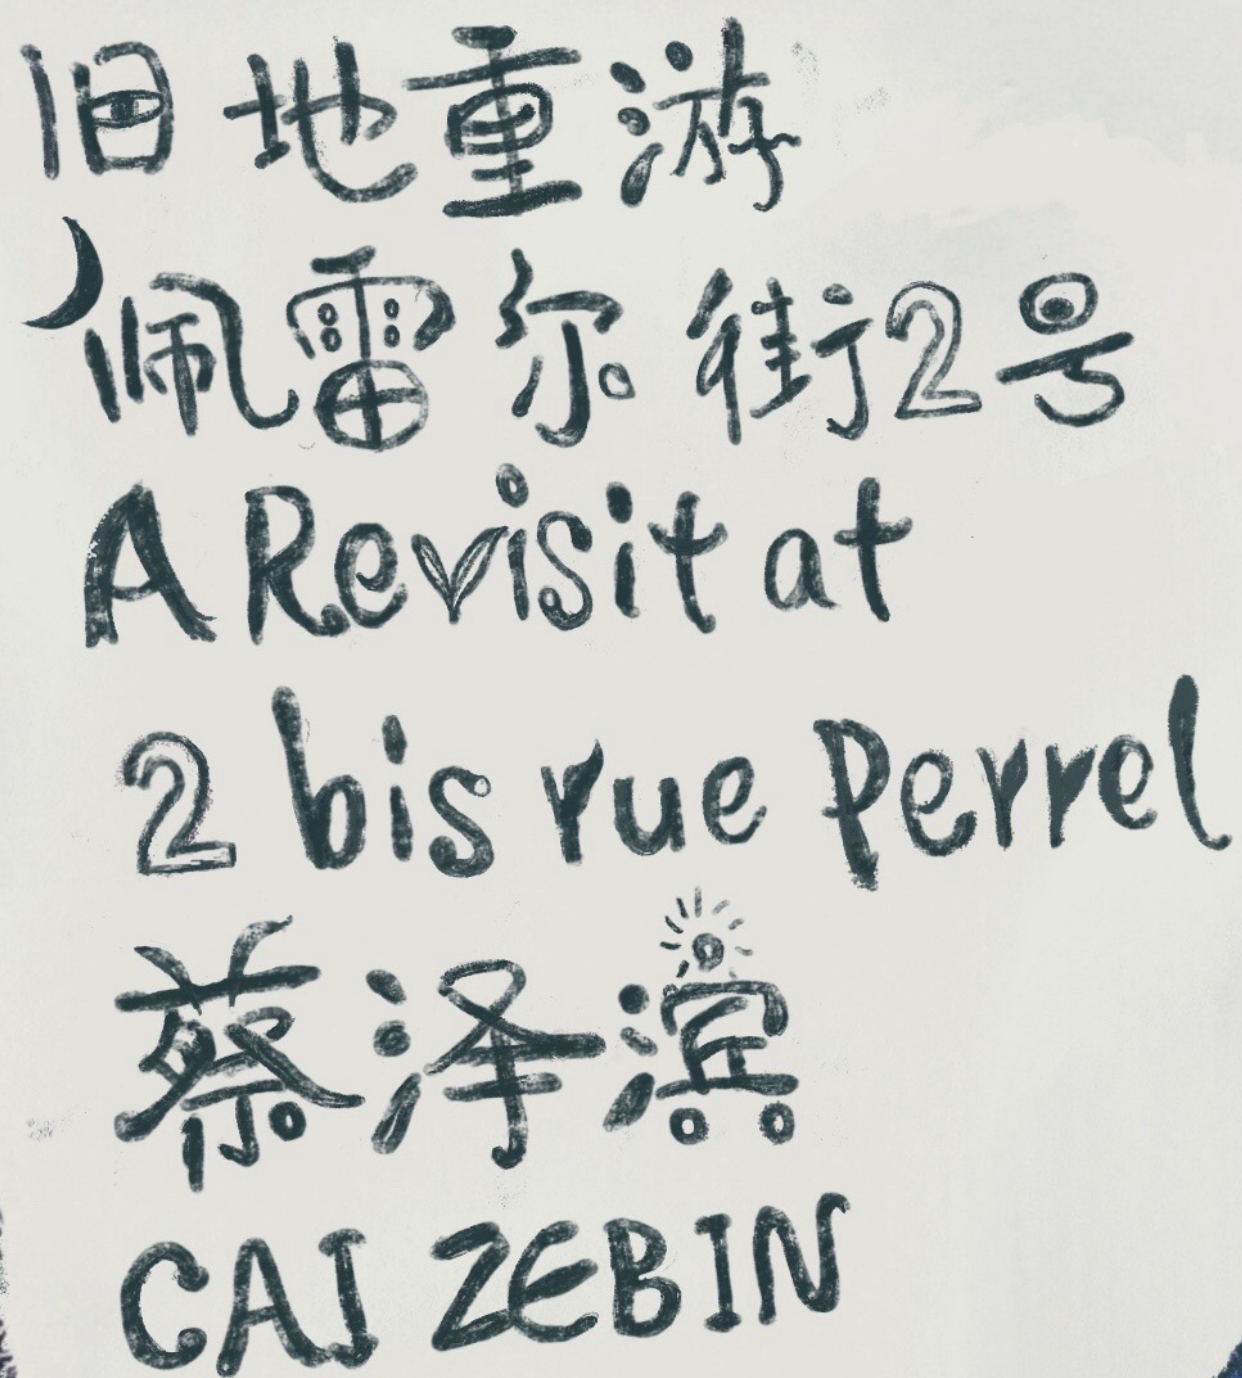 旧地重游
佩雷尔街2号
A Revisit at
2 bis rue Perrel
蔡泽滨
CAI ZEBIN